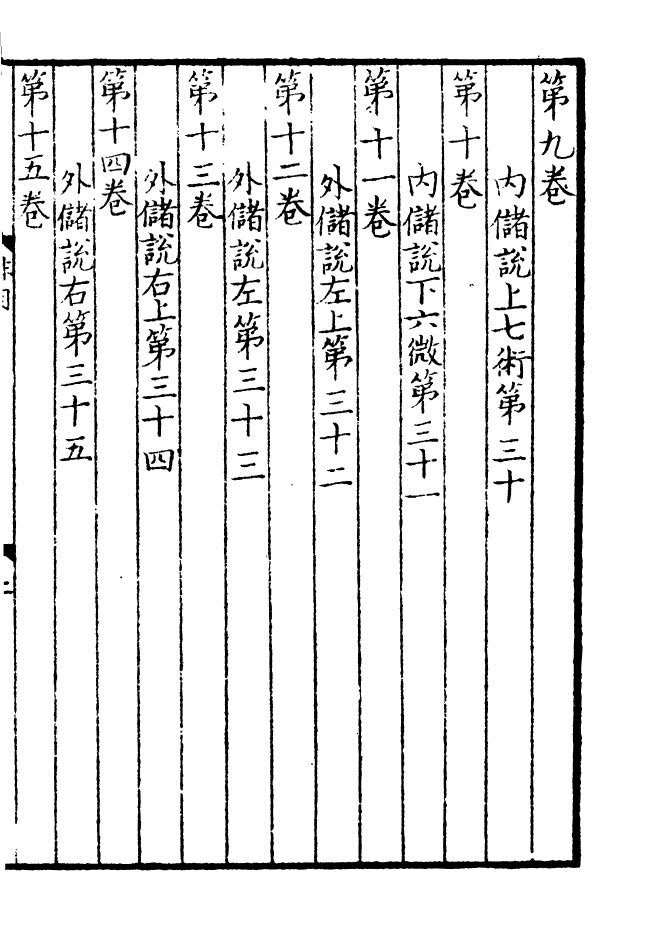 第九卷
內儲說上七術第三十
第十卷
內儲說下六微第三十一
第十一卷
外儲說左上第三十二
第十二卷
外儲說左第三十三
第十三卷
外儲說右上第三十四
第十四卷
外儲說右第三十五
第十五卷